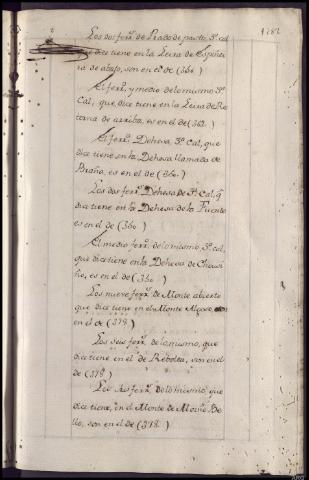 1282
Los dos ferr.s de Prado de pasto, 3.ª cal.
que dice tiene en la Leira de Espiñei
ra de abajo, son en el de (360)
El ferr.o y medio de lo mismo 3.ª
Cal, que dice tiene en la Leira de Re
torna de arriba, es en el de (362)
El ferr.o Dehesa, 3.ª Cal, que
dice tiene en la Dehesa llamada de
Braña, es en el de (360)
Los dos ferr.s Dehesa de 3.ª Cal. q
dice tiene en la Dehesa de la Fuente
es en el de (360)
El medio ferr.o de lo mismo, 3.ª cal,
que dice tiene en la Dehesa de
ño, es en el de (360)
Los nueve ferr.s de Monte abierto
que dice tiene en el Monte
en el de (378)
Los seis ferr.s de lo mismo, que
dice tiene en el de Rebolea, son en el
de (378)
Los seis ferr.s de lo mismo que
dice tiene, en el Monte de Be
llo, son en el de (378)